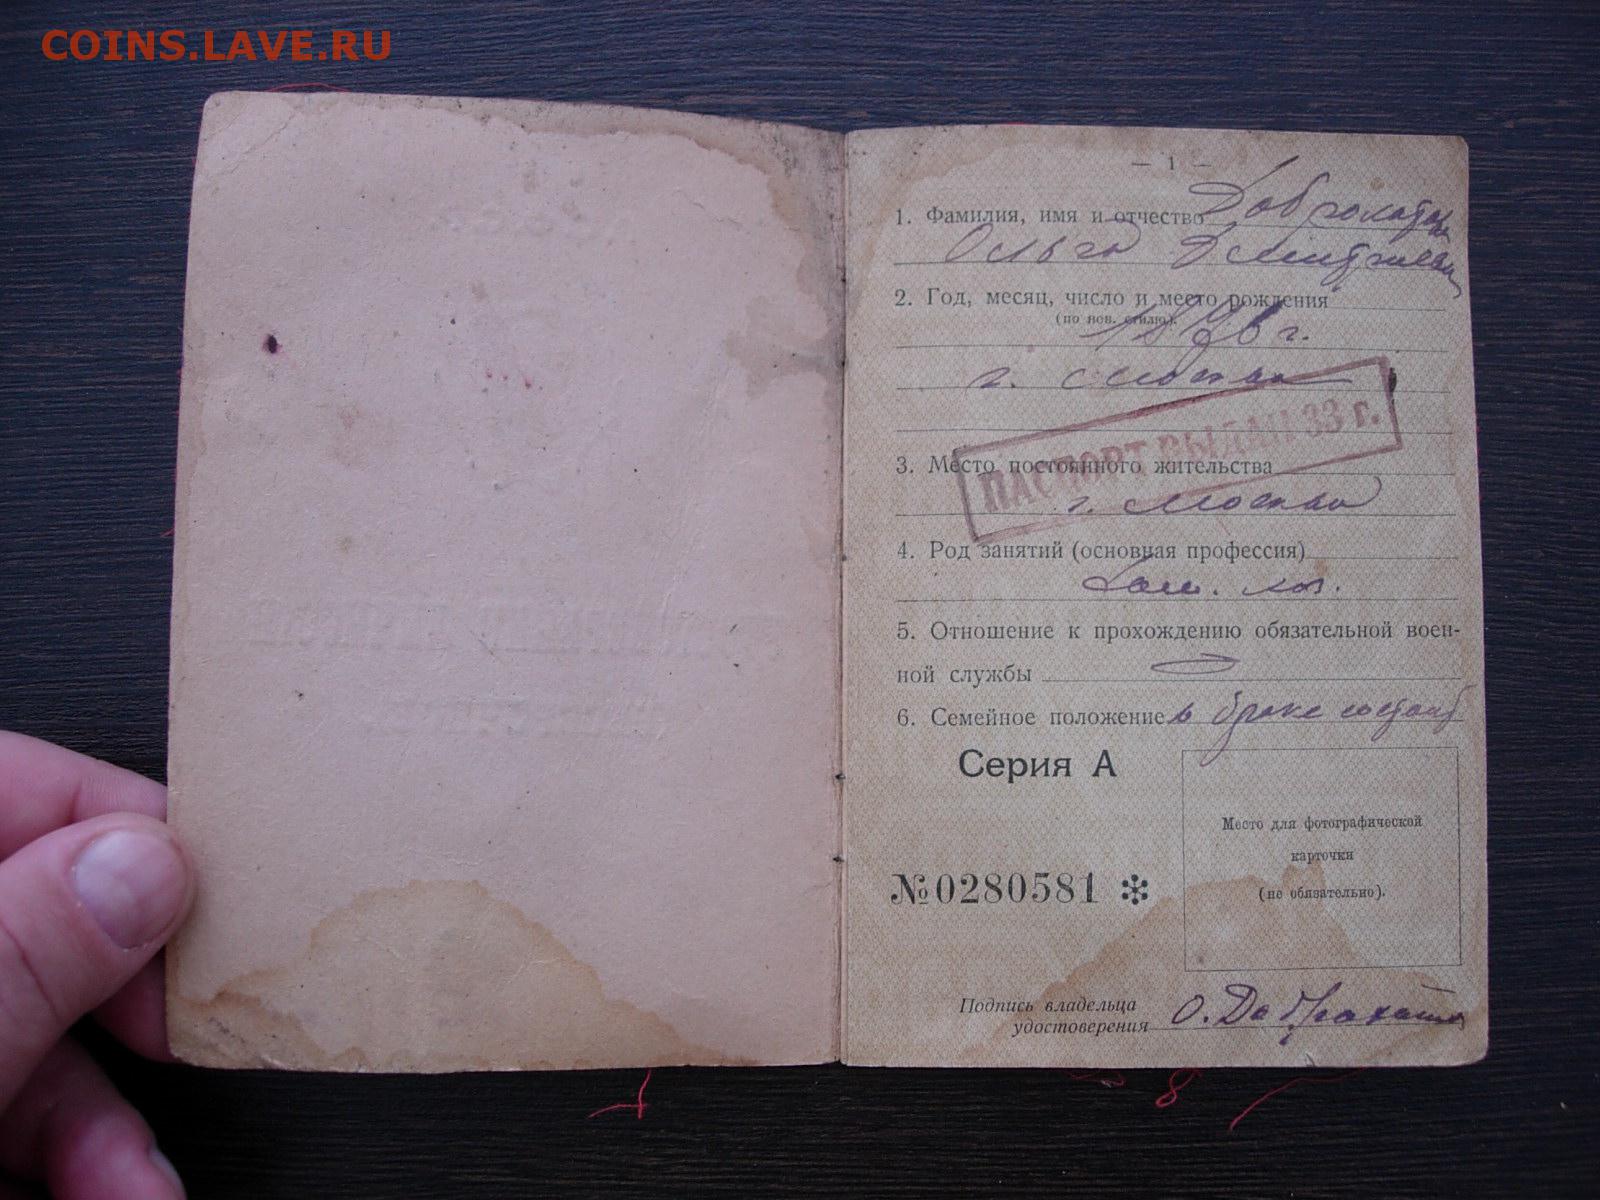 COINS.LAVE.RU
— 1 —
1. Фамилия, имя и отчество
Ольга
2. Год, месяц, число и место рождения
(по нов. стилю).
г.
г. Москва
ПАСПОРТ ВЫДАН 33 г.
3. Место постоянного жительства
г. Москва
4. Род занятий (основная профессия)
Дом. хоз.
5. Отношение к прохождению обязательной воен-
ной службы
6. Семейное положение в браке состоит
Серия А
Место для фотографической
карточки
(не обязательно).
№ 0280581
Подпись владельца
удостоверения
О.